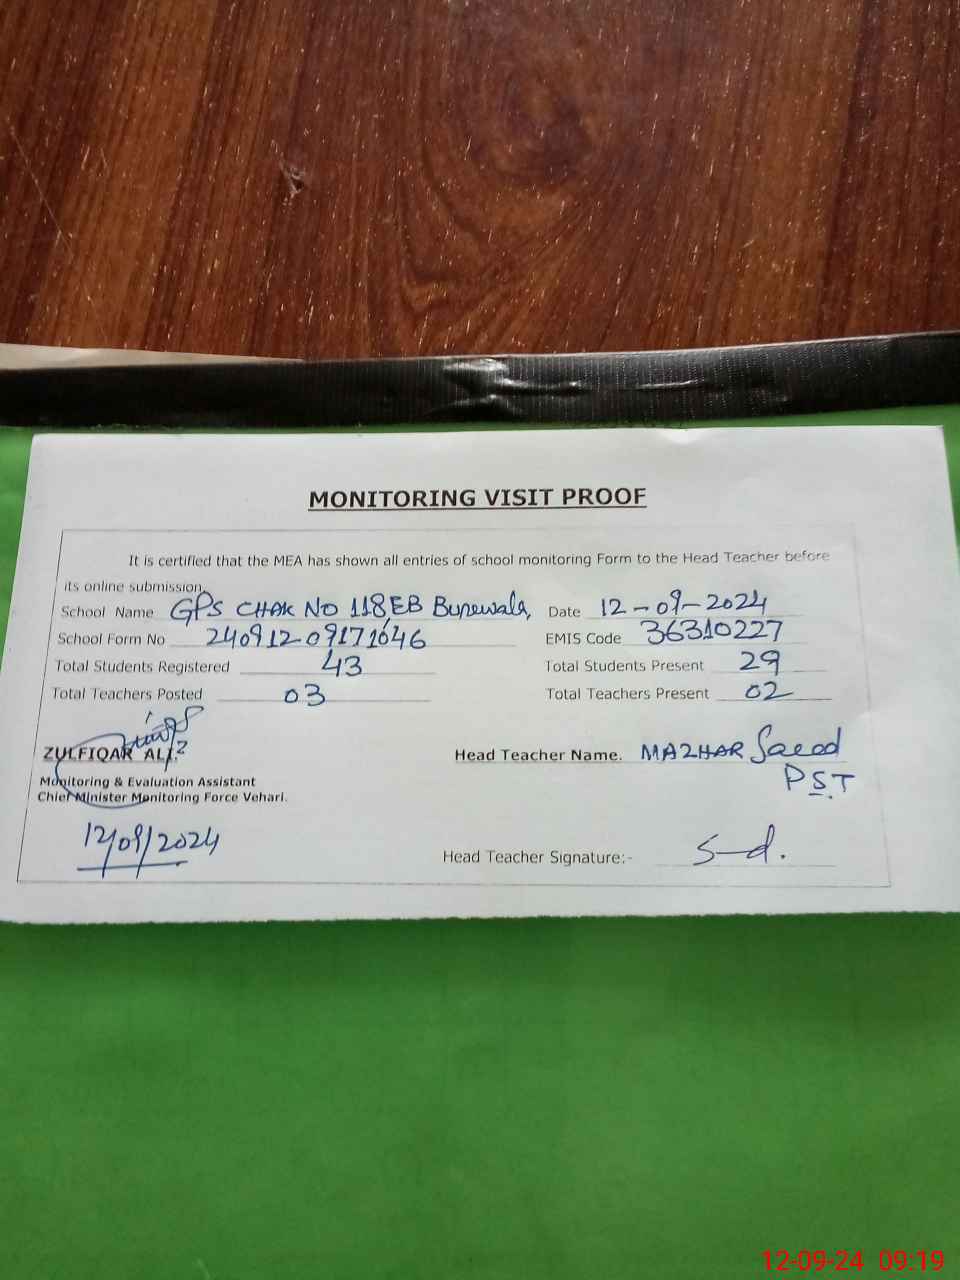 MONITORING VISIT PROOF
It is certified that the MEA has shown all entries of school monitoring Form to the Head Teacher before
its online submission.
School Name GPS CHAK NO 118,EB Burewala, Date 12-09-2024
School Form No 24091209171646 EMIS Code 36310227
Total Students Registered 43 Total Students Present 29
Total Teachers Posted 03 Total Teachers Present 02
ZULFIQAR ALI. Head Teacher Name. MAZHAR Saeed
PST
Monitoring & Evaluation Assistant
Chief Minister Monitoring Force Vehari.
12/09/2024
Head Teacher Signature:- S-d.
12-09-24 09:19